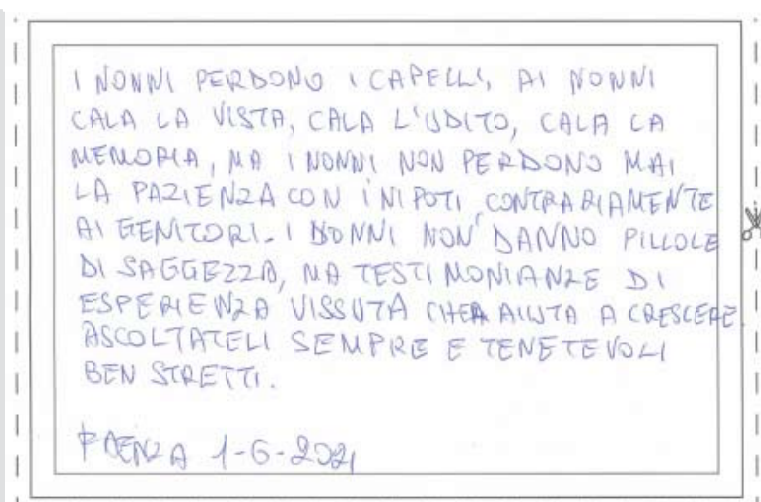 I NONNI PERDONO I CAPELLI, AI NONNI
CALA LA VISTA, CALA L'UDITO, CALA LA
MEMORIA, MA I NONNI NON PERDONO MAI
LA PAZIENZA CON I NIPOTI, CONTRARIAMENTE
AI GENITORI. I NONNI NON DANNO PILLOLE
DI SAGGEZZA, MA TESTIMONIANZE DI
ESPERIENZA VISSUTA CHE AIUTA A CRESCERE.
ASCOLTATELI SEMPRE E TENETEVOLI
BEN STRETTI.
FAENZA 1-6-2021